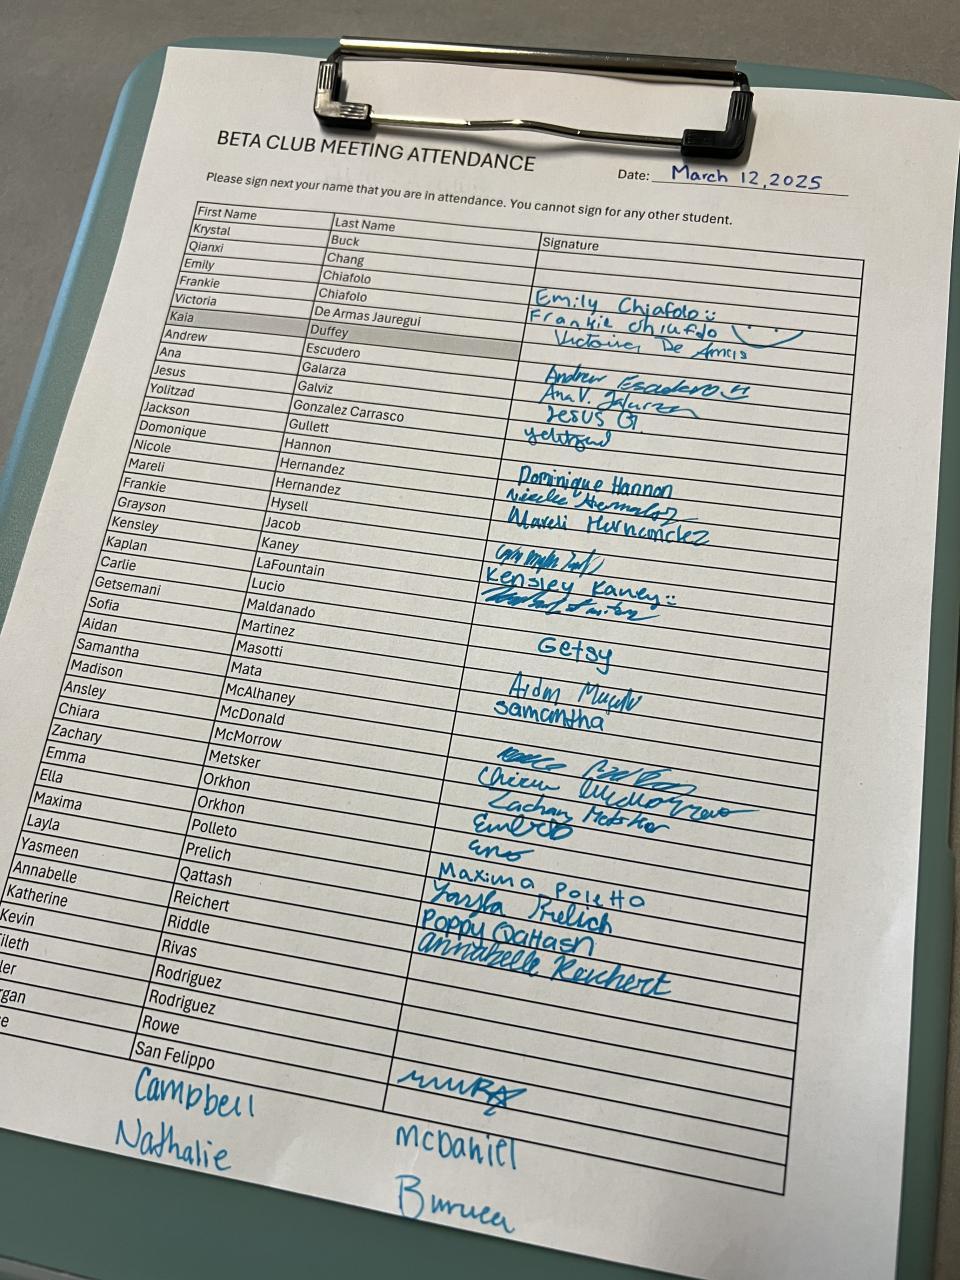 BETA CLUB MEETING ATTENDANCE
Date: March 12, 2025
Please sign next your name that you are in attendance. You cannot sign for any other student.
First Name Last Name Signature
Krystal Buck
Qianxi Chang
Emily Chiafolo Emily Chiafolo
Frankie Chiafolo Frankie
Victoria De Armas Jauregui De Armas
Kaia Duffey
Andrew Escudero Andrew Escudero
Ana Galarza Ana V. Galarza
Jesus Galviz Jesus G
Yolitzad Gonzalez Carrasco
Jackson Gullett
Domonique Hannon Dominique Hannon
Nicole Hernandez
Mareli Hernandez Mareli Hernandez
Frankie Hysell
Grayson Jacob
Kensley Kaney Kensley Kaney
Kaplan LaFountain
Carlie Lucio
Getsemani Maldanado Getsy
Sofia Martinez
Aidan Masotti Aidan
Samantha Mata Samantha
Madison McAlhaney
Ansley McDonald
Chiara McMorrow
Zachary Metsker Zachary Metsker
Emma Orkhon
Ella Orkhon
Maxima Polleto Maxima Poletto
Layla Prelich Layla Prelich
Yasmeen Qattash Poppy Qattash
Annabelle Reichert Annabelle Reichert
Katherine Riddle
Kevin Rivas
ileth Rodriguez
ler Rodriguez
rgan Rowe
e San Felippo
Campbell McDaniel
Nathalie Buruca